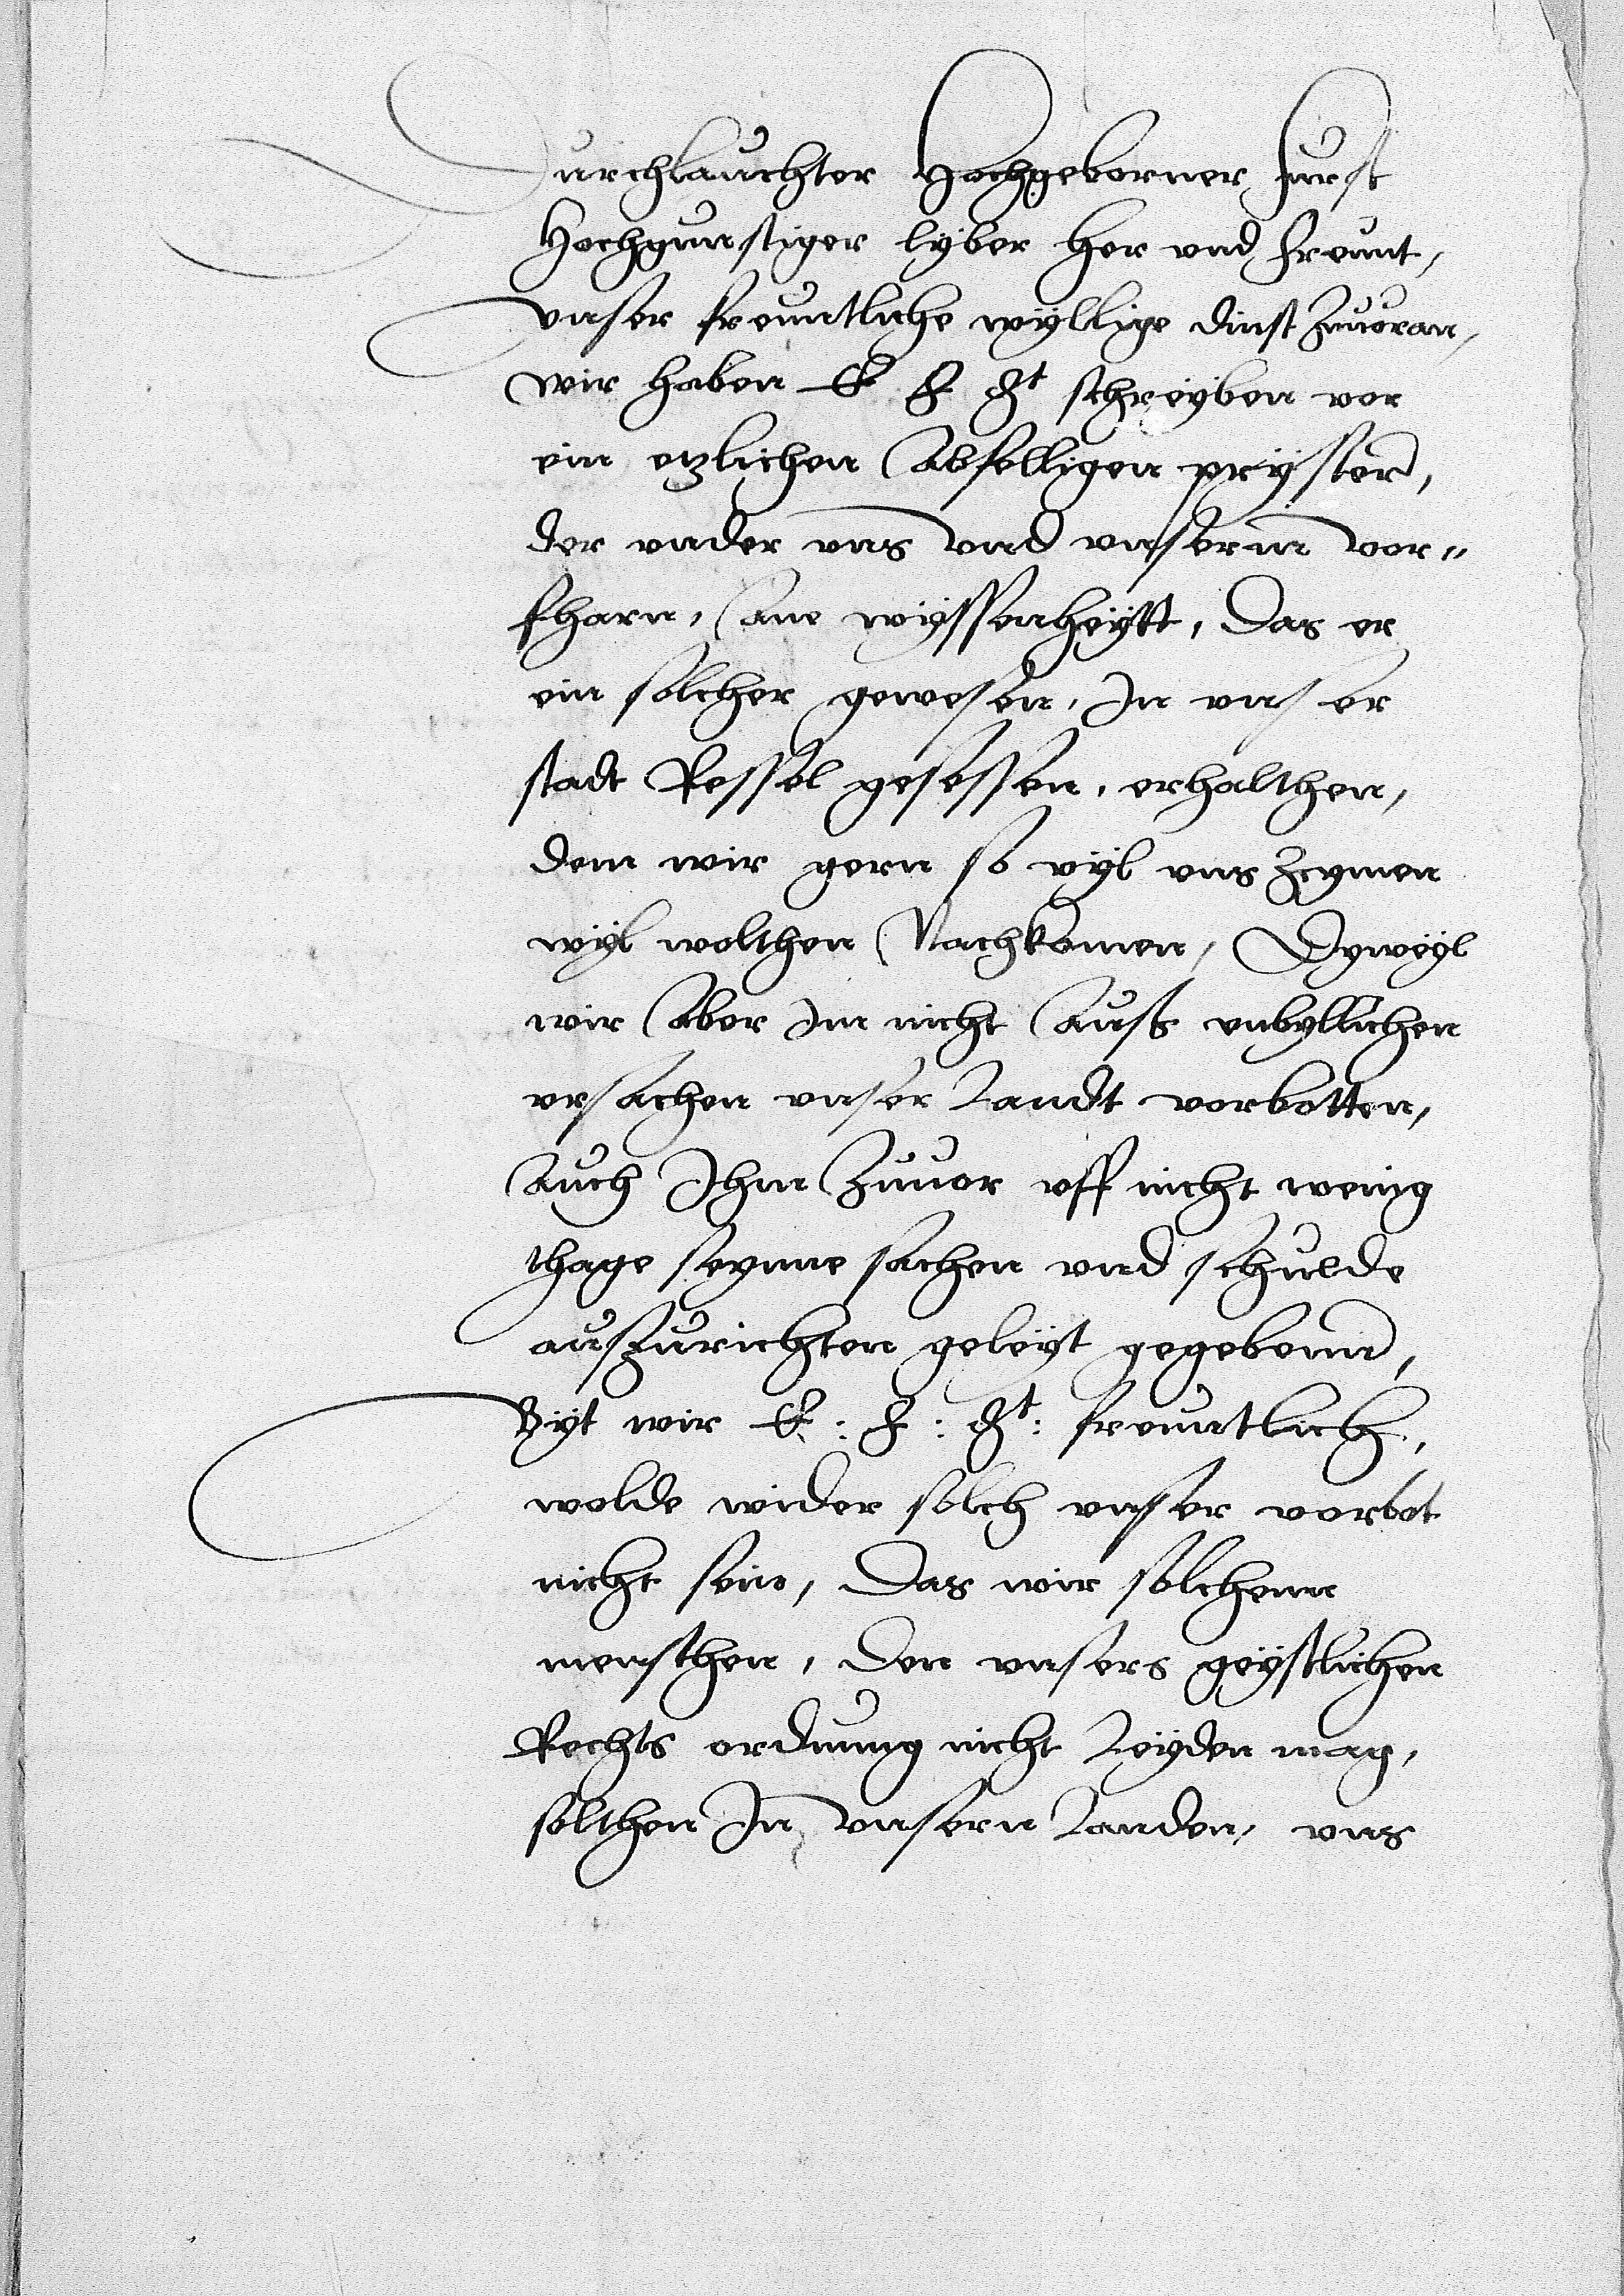 Durchlauchter Hochgeborner Furst
Hochgunstiger lyber her vnd freunt,
vnser freuntliche wyllige dinst zuuoran,
wir haben E F Gt schreyben vor
ein etzlichen Abfelligen pryster,
der vnder vns vnd vnserm vor„
fharn, Ane wyssenheytt, das er
ein solcher gewesen, In vnser
stadt Ressel gesessen, erhalthen,
dem wir gern so vyl vns zcymen
wyl wolthen Nachkomen, Dyweyl
wir Aber Im nicht Auss vnbyllichen
vrsachen vnser Landt vorbotten,
Auch Ihm Zuuor vff nicht wenig
thage seyne sachen vnd schulde
auszurichten geleyt gegebenn,
Byt wir E: F: Gt: freuntlich,
wolde wider solch vnser vorbot
nicht sein, das wir solchenn
mensthen, den vnsers geystlichen
Rechts ordnung nicht Leyden mag,
solthen In vnsern Landen, vns